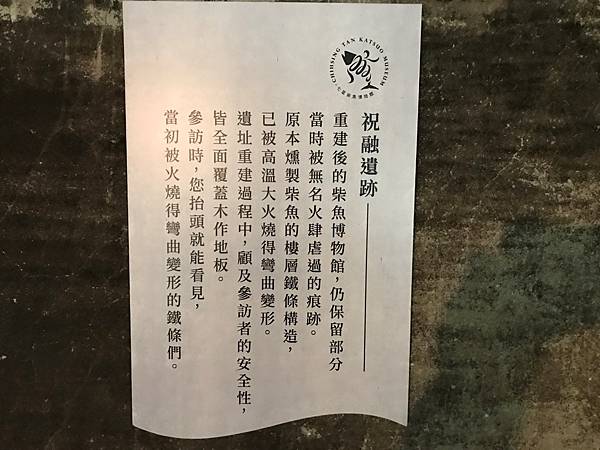 CHIHSING TAN KATSUO MUSEUM
七星柴魚博物館
祝融遺跡
重建後的柴魚博物館，仍保留部分
當時被無名火肆虐過的痕跡。
原本燻製柴魚的樓層鐵條構造，
已被高溫大火燒得彎曲變形。
遺址重建過程中，顧及參訪者的安全性，
皆全面覆蓋木作地板。
參訪時，您抬頭就能看見，
當初被火燒得彎曲變形的鐵條們。